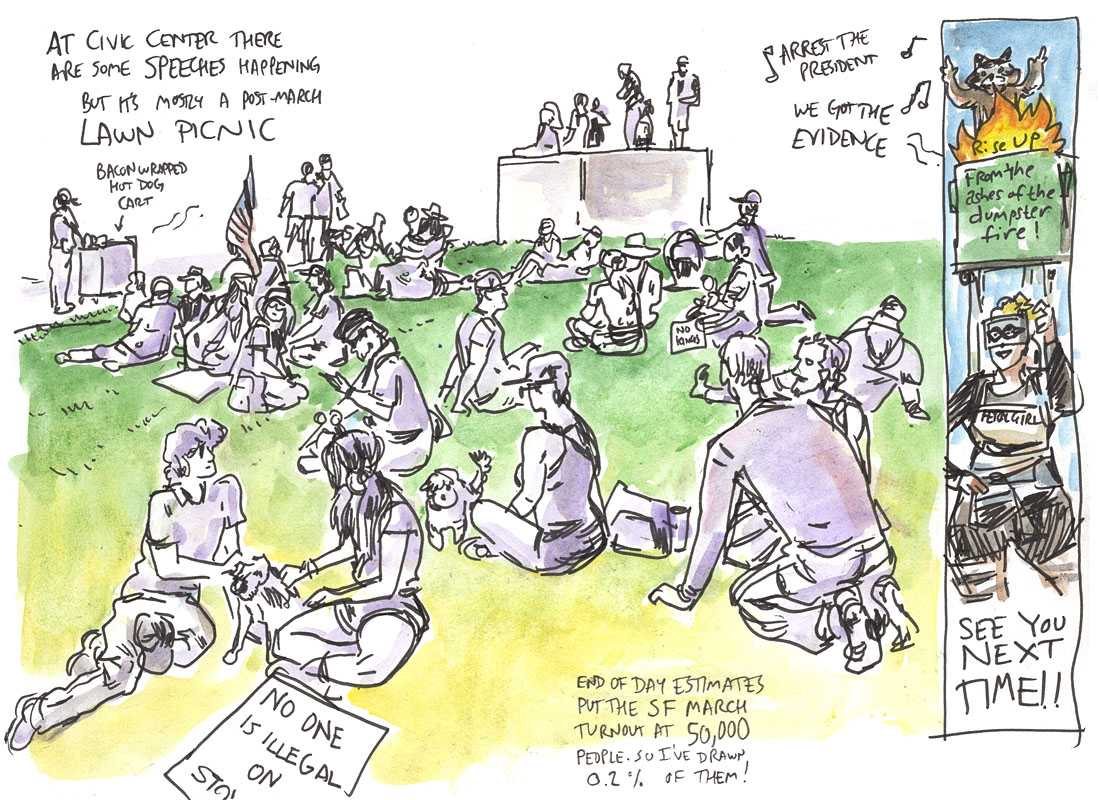 AT CIVIC CENTER THERE
ARE SOME SPEECHES HAPPENING
BUT IT'S MOSTLY A POST-MARCH
LAWN PICNIC
BACON WRAPPED
HOT DOG
CART
ARREST THE
PRESIDENT
WE GOT THE
EVIDENCE
NO
KINGS
NO ONE
IS ILLEGAL
ON
END OF DAY ESTIMATES
PUT THE SF MARCH
TURNOUT AT 50,000
PEOPLE. SO I'VE DRAWN
0.2% OF THEM!
Rise UP
From the
ashes of the
dumpster
fire!
SEE YOU
NEXT
TIME!!